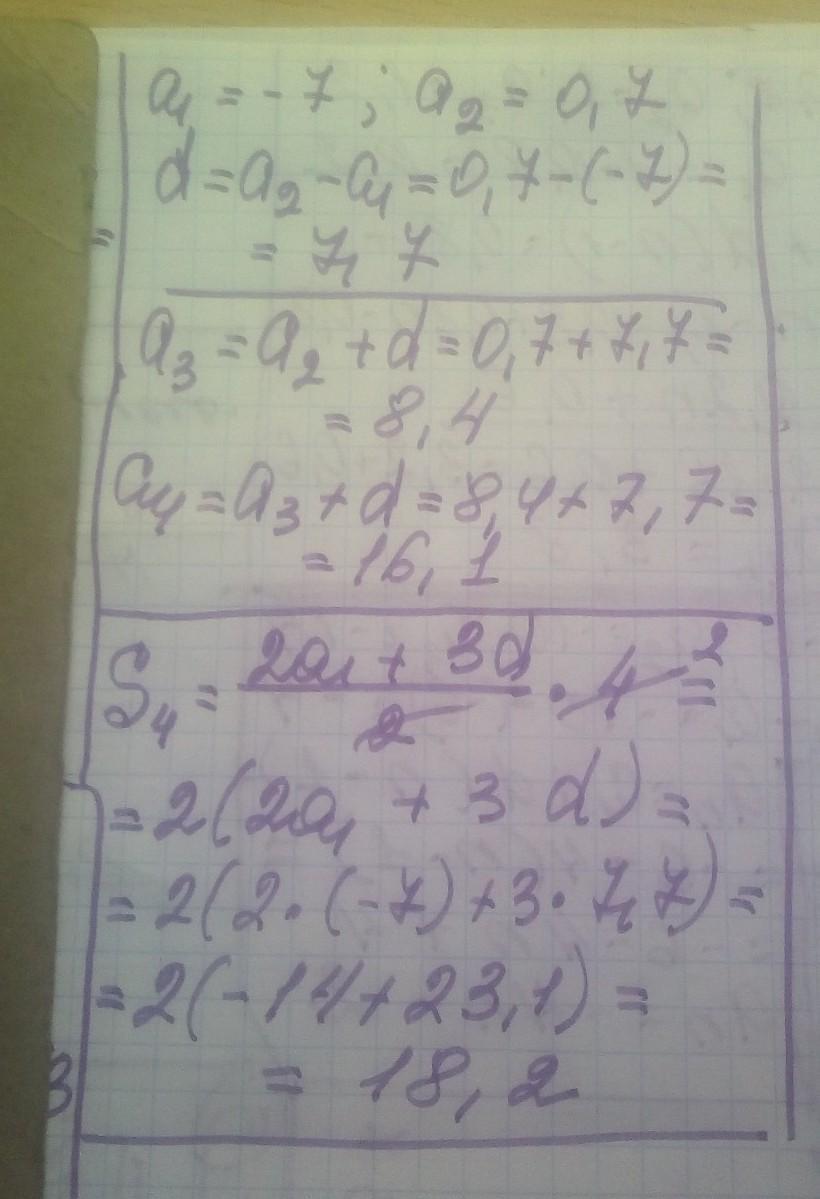 a₁ = -7 ; a₂ = 0,7
d = a₂ - a₁ = 0,7 - (-7) =
= 7,7
a₃ = a₂ + d = 0,7 + 7,7 =
= 8,4
a₄ = a₃ + d = 8,4 + 7,7 =
= 16,1
S₄ = (2a₁ + 3d)/2 · 4 ² =
= 2(2a₁ + 3d) =
= 2(2·(-7) + 3·7,7) =
= 2(-14 + 23,1) =
= 18,2